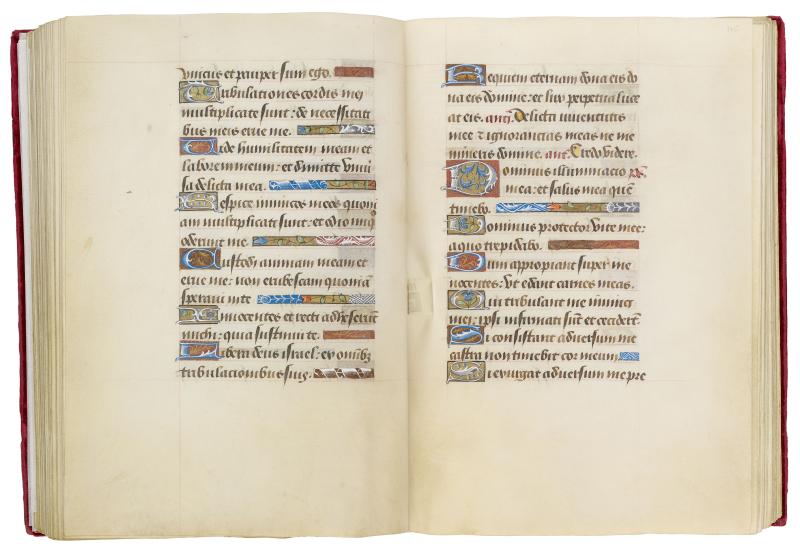 vnicus et pauper sum ego.
Tribulationes cordis mei
multiplicate sunt: de necessitati
bus meis erue me.
Vide humilitatem meam et
laborem meum: et dimitte vniu
sa delicta mea.
Respice inimicos meos quoni
am multiplicati sunt: et odio iniq
oderunt me.
Custodi animam meam et
erue me: non erubescam quoniā
speraui in te
Innocentes et recti adheserūt
michi: quia sustinui te.
Libera deus israel: ex omnibꝫ
tribulacionibus suis.
Requiem eternam dona eis do
na eis domine: et lux perpetua luce
at eis. anͭ. Delicta iuuentutis
mee ⁊ ignorancias meas ne me
mineris domine. anͭ. Credo videre.
Dominus illuminacio pͬs
mea: et salus mea quē
timebo.
Dominus protector vite mee:
a quo trepidabo.
Dum appropiant super me
nocentes: vt edant carnes meas.
Qui tribulant me inimici
mei: ipsi infirmati sūt et ceciderūt.
Si consistant aduersum me
castra non timebit cor meum.
Si exurgat aduersum me pre